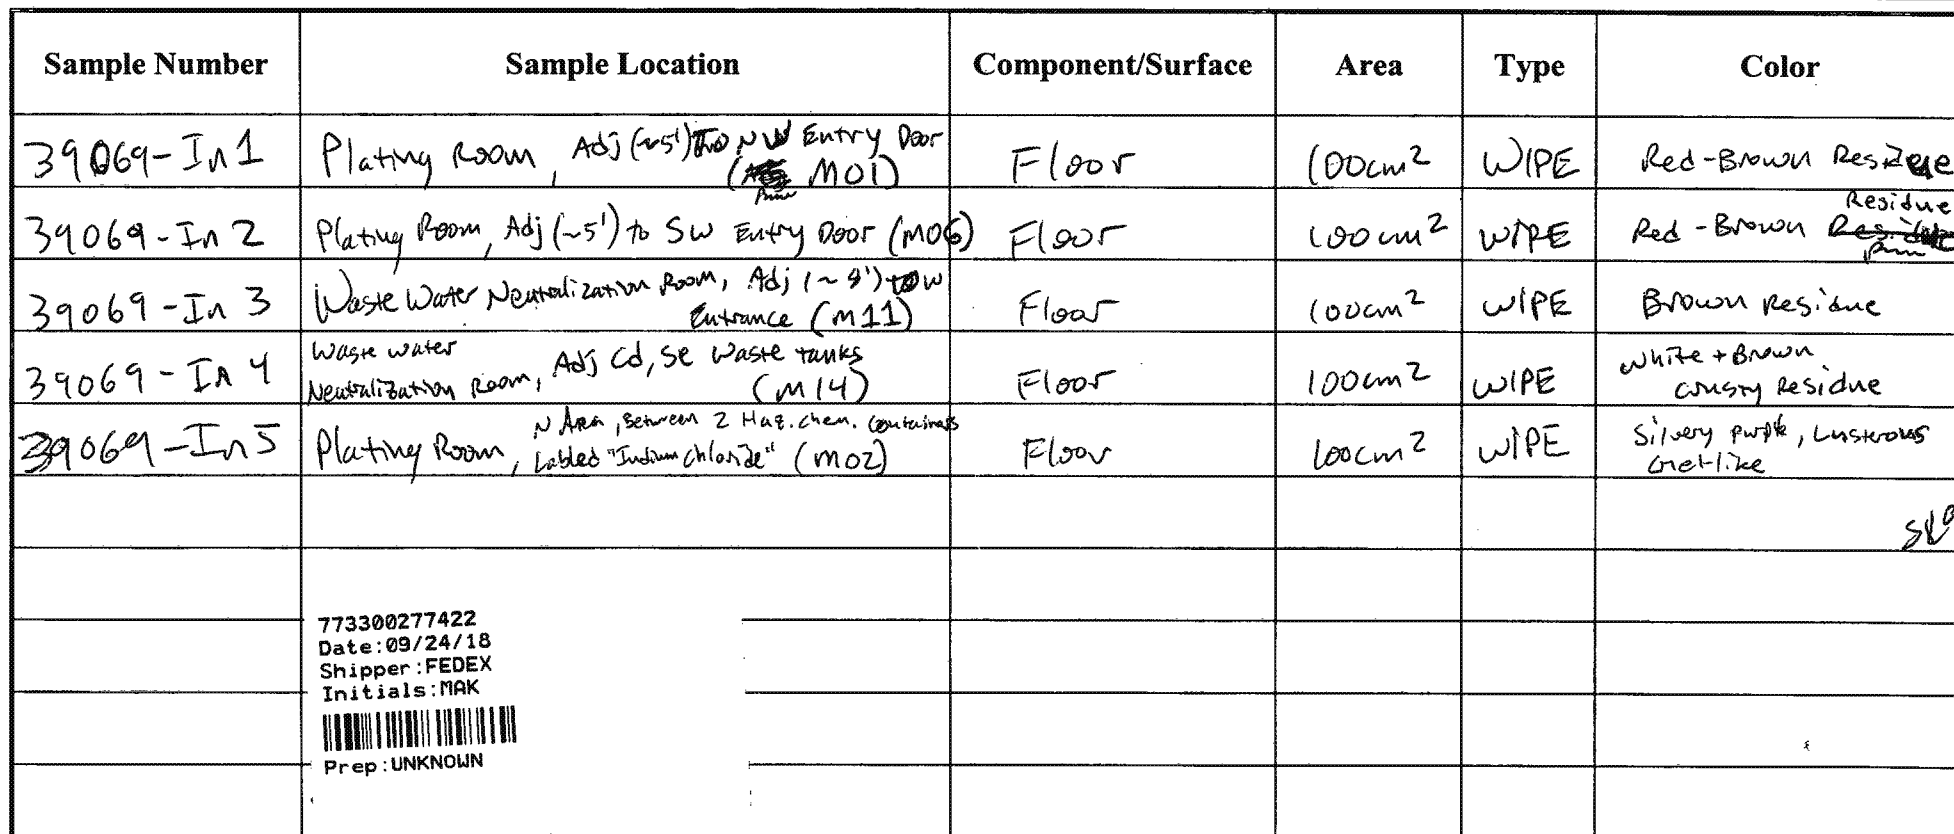 Sample Number Sample Location Component/Surface Area Type Color
39069-In1 Plating Room, Adj (~5') to NW Entry Door (M01) Floor 100cm² WIPE Red-Brown Residue
39069-In2 Plating Room, Adj (~5') to SW Entry Door (M06) Floor 100cm² WIPE Red-Brown Residue
39069-In 3 Waste Water Neutralization Room, Adj (~ 5') to W Entrance (M11) Floor 100cm² WIPE Brown Residue
39069-In 4 Waste water Neutralization Room, Adj Cd, Se Waste tanks (M14) Floor 100cm² WIPE White + Brown crusty Residue
39069-In5 Plating Room, N Area, Between 2 Haz. chem. containers Labled "Indium chloride" (M02) Floor 100cm² WIPE Silvery purple, Lusterous Gel-like
773300277422
Date:09/24/18
Shipper:FEDEX
Initials:MAK
Prep:UNKNOWN